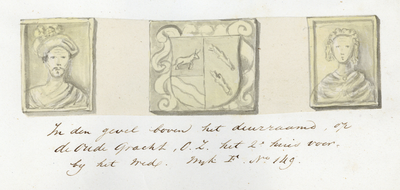 In den gevel boven het deurraamd, op
de Oude Gracht, O.Z. het 2e huis voor
by het Wed. Wyk F. No 149.